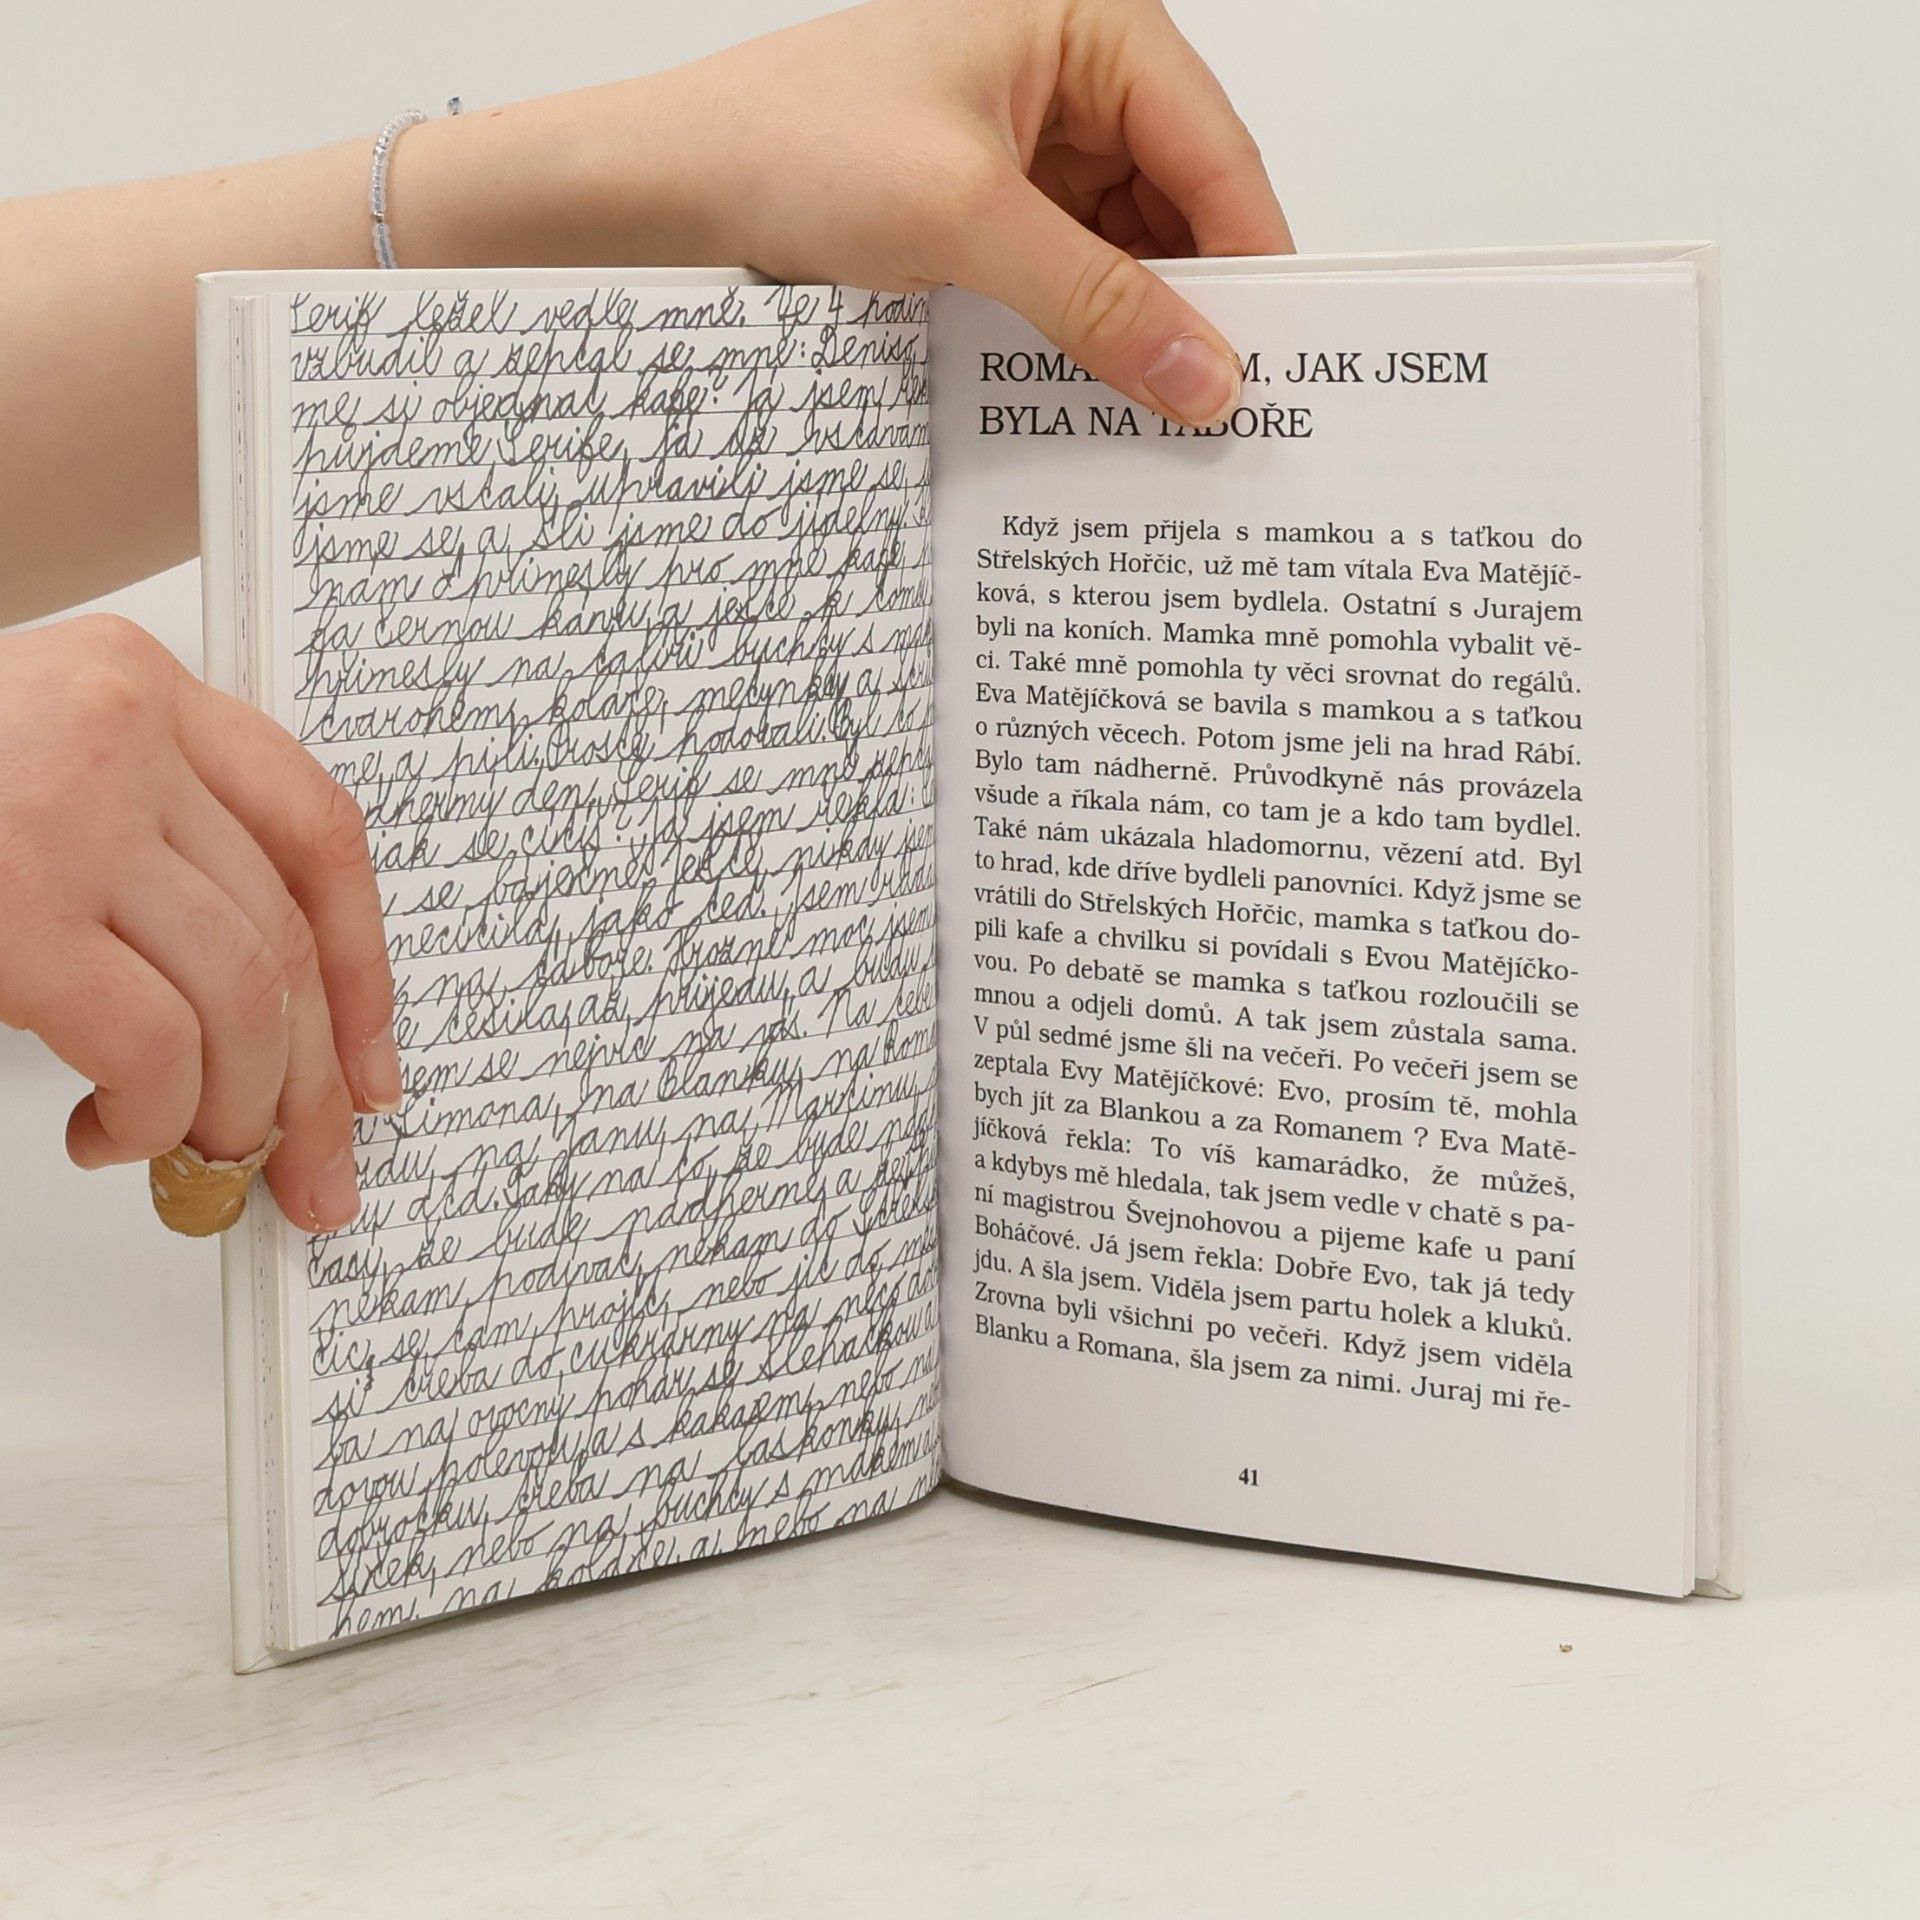 Šerif ležel vedle mně. Ve 4
vzbudil a zeptal se mně: Deniso,
me si objednat kafe? Já jsem
půjdeme Šerife, já už vstávám
jsme vstali, upravili jsme se,
jsme se a šli jsme do jídelny.
nám a přinesly pro mně kafe,
fa černou kávu a ještě k tomu
přinesly na talíři buchty s
tvarohem, koláče,
me a pili. Prostě hodovali. Byl to
den. Šerif se mně
jak se cítíš? Já jsem řekla:
se báječně. Ještě nikdy jsem
necítila, jako teď. Jsem ráda
na táboře. Hrozně moc jsem
těšila, až přijedu a budu
jsem se nejvíc na vás. Na tebe
Šimona, na Blanku, na
na Janu, na Martinu,
atd. Taky na to, že bude
časy, že bude nádherně a
někam podívat, někam do
čic se tam projít, nebo jít do
si třeba do cukrárny na něco
ba na ovocný pohár se šlehačkou a
polevou a s kakaem, nebo na
dobrotku, třeba na laskonku,
nebo na buchty s mákem a
hem, na koláče a nebo na
ROMA M, JAK JSEM
BYLA NA TÁBOŘE
Když jsem přijela s mamkou a s taťkou do
Střelských Hořčic, už mě tam vítala Eva Matějíč-
ková, s kterou jsem bydlela. Ostatní s Jurajem
byli na koních. Mamka mně pomohla vybalit vě-
ci. Také mně pomohla ty věci srovnat do regálů.
Eva Matějíčková se bavila s mamkou a s taťkou
o různých věcech. Potom jsme jeli na hrad Rábí.
Bylo tam nádherně. Průvodkyně nás provázela
všude a říkala nám, co tam je a kdo tam bydlel.
Také nám ukázala hladomornu, vězení atd. Byl
to hrad, kde dříve bydleli panovníci. Když jsme se
vrátili do Střelských Hořčic, mamka s taťkou do-
pili kafe a chvilku si povídali s Evou Matějíčko-
vou. Po debatě se mamka s taťkou rozloučili se
mnou a odjeli domů. A tak jsem zůstala sama.
V půl sedmé jsme šli na večeři. Po večeři jsem se
zeptala Evy Matějíčkové: Evo, prosím tě, mohla
bych jít za Blankou a za Romanem ? Eva Matě-
jíčková řekla: To víš kamarádko, že můžeš,
a kdybys mě hledala, tak jsem vedle v chatě s pa-
ní magistrou Švejnohovou a pijeme kafe u paní
Boháčové. Já jsem řekla: Dobře Evo, tak já tedy
jdu. A šla jsem. Viděla jsem partu holek a kluků.
Zrovna byli všichni po večeři. Když jsem viděla
Blanku a Romana, šla jsem za nimi. Juraj mi ře-
41